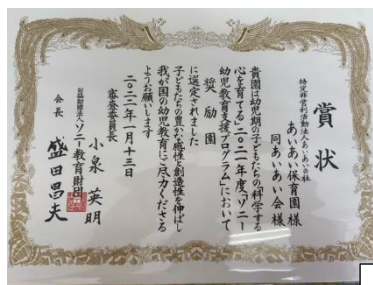 賞状
特定非営利活動法人あいあいの杜
あいあい保育園 様
同あいあい会 様
貴園は幼児期の子どもたちの「科学する
心を育てる」二〇二一年度「ソニー
幼児教育支援プログラム」において
奨励園
に選定されました
子どもたちの豊かな感性と創造性を伸ばし
我が国の幼児教育にご尽力くださる
ようお願いします
二〇二二年一月十三日
審査委員長 小泉英明
公益財団法人ソニー教育財団
会長 盛田昌夫